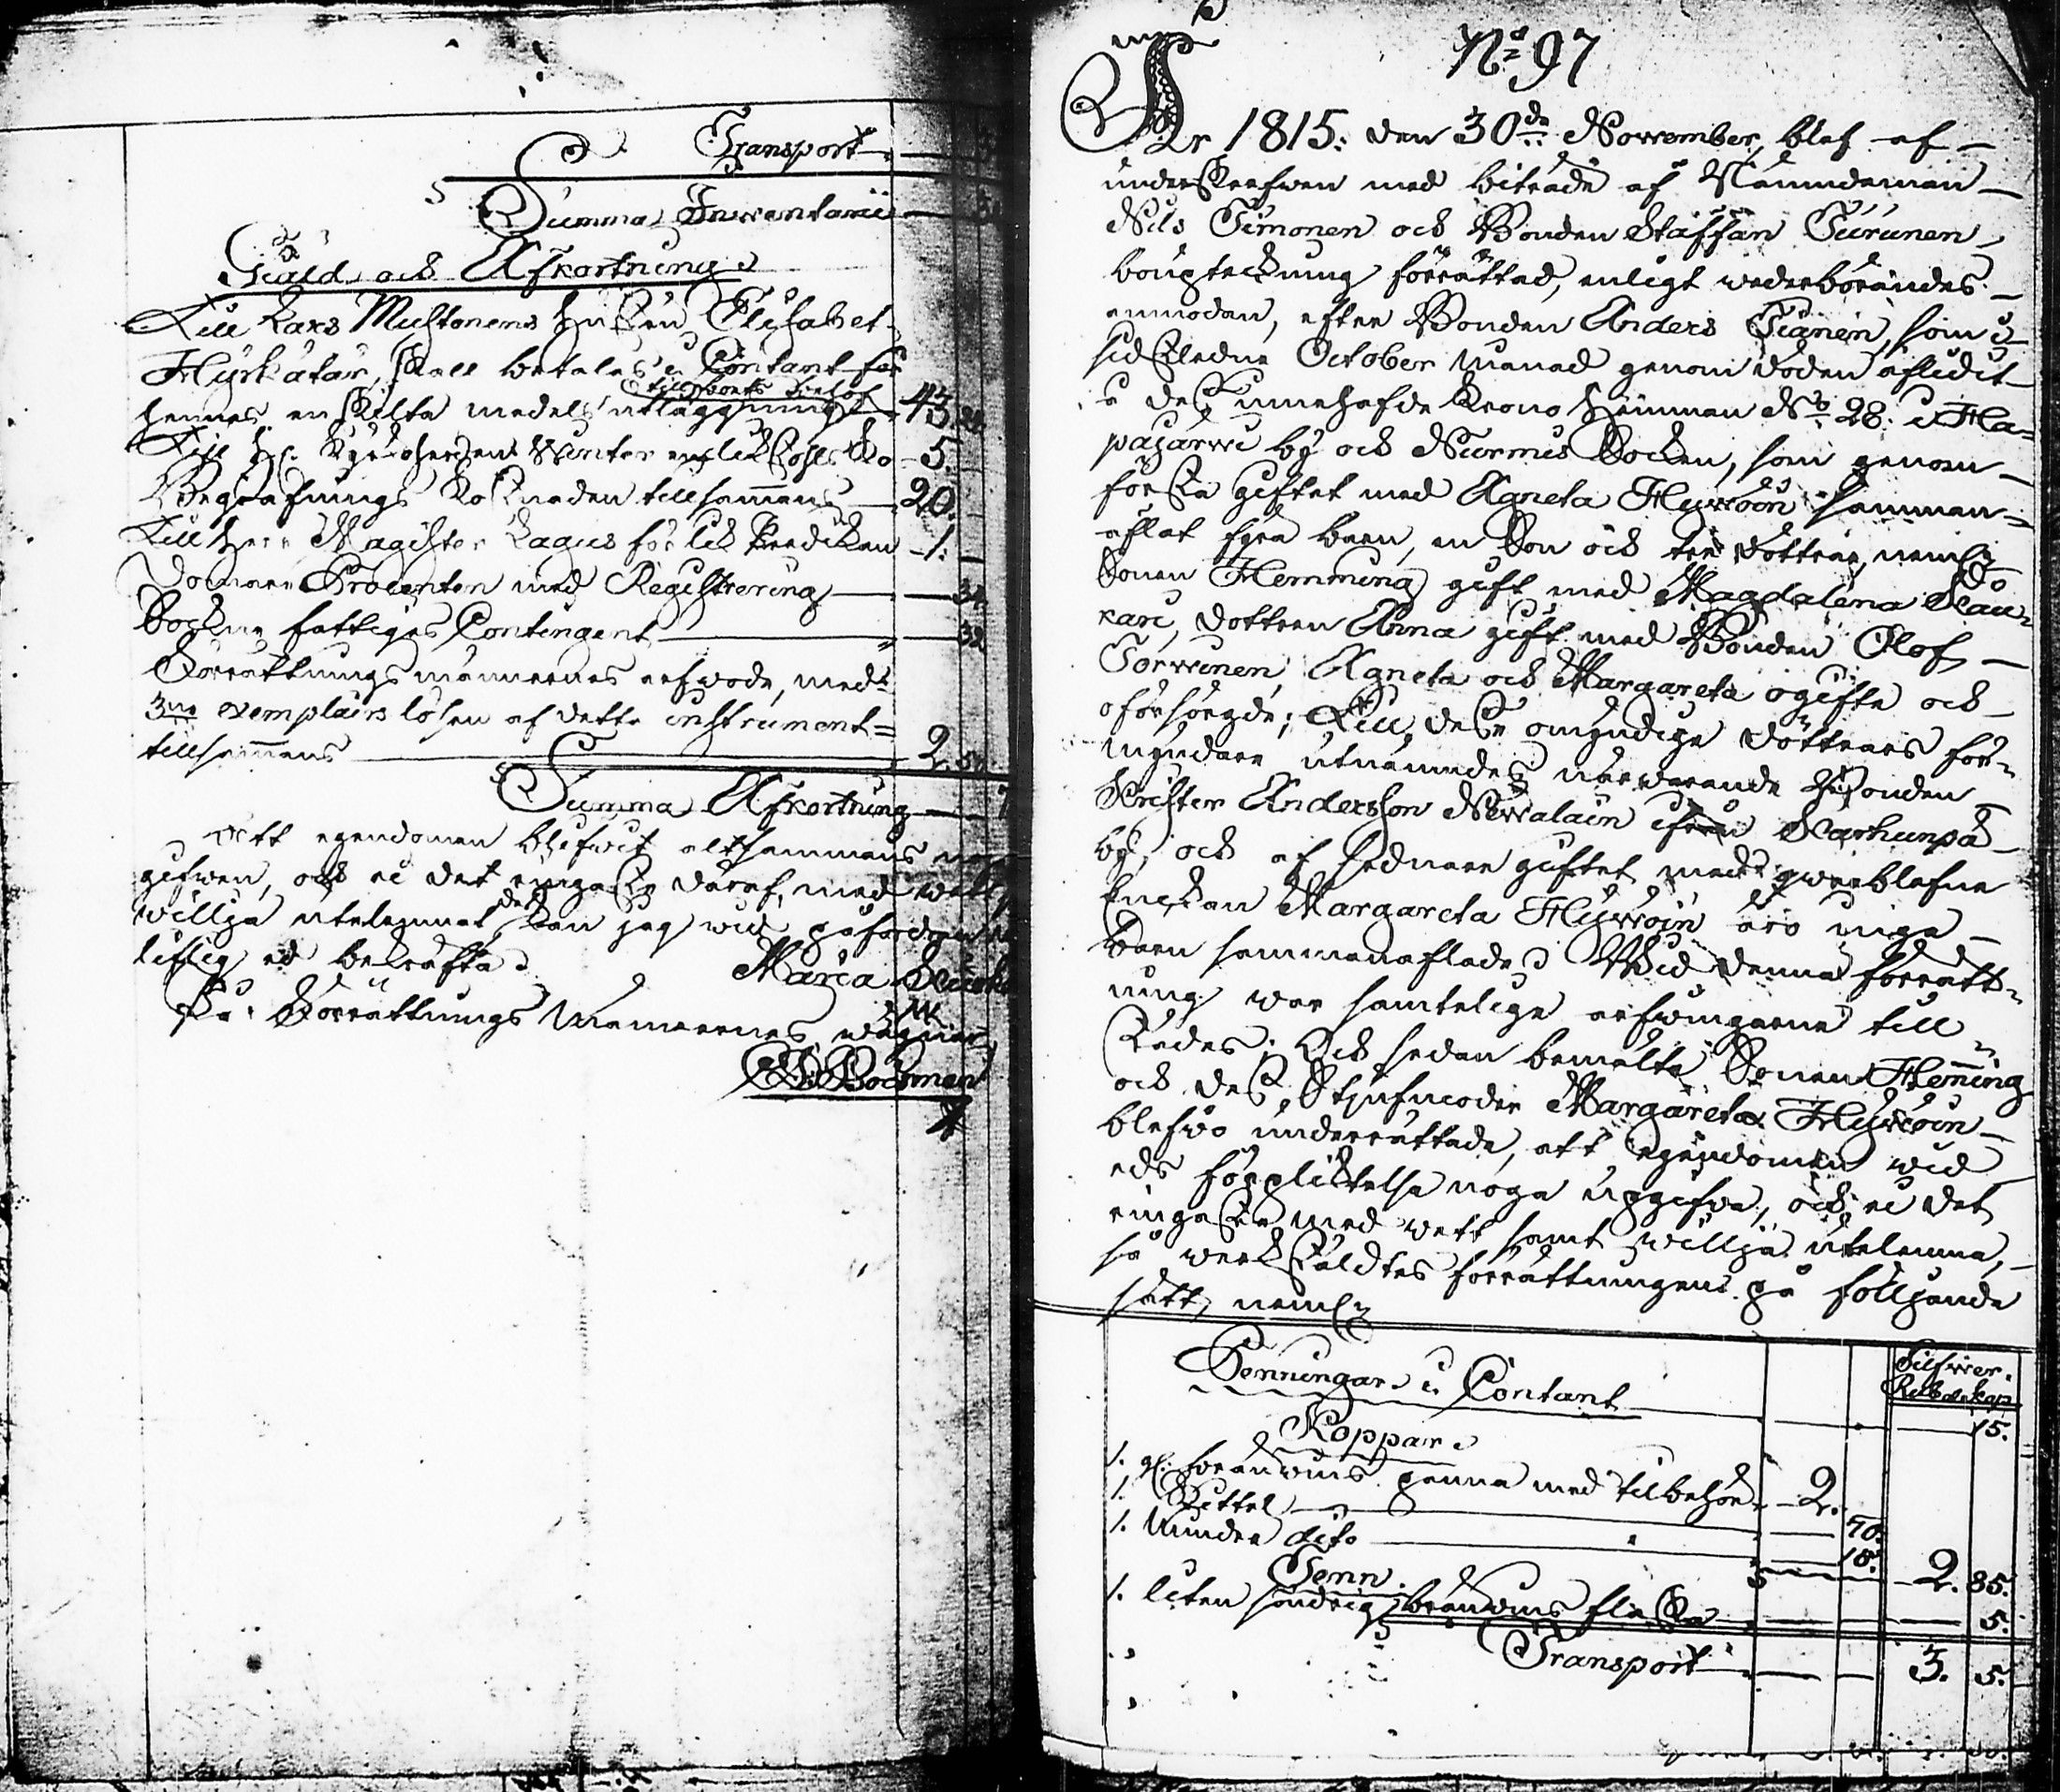 Transport
Summa Inventarii
Gäld och Afkortning
Till Lars Mustonens hustru Elisabet
Hyrkätär, skall betalas i Contant för
till boets behof
hennes enskilta medels utläggning 43.
Till Hr Kyrkoherden Winter en likstohls ko 5.
Begrafnings kostnaden tillsammans 20.
Till Herr Magister Lagus för lik predikan 1.
Domare Procenten med Registrering 32
Sockne fattiges Contingent 32
Förrättningsmännernes arfvode, med
3ne exemplairs lösen af detta instrument
tillsammans 2.
Summa Afkortning
Att egendomen blifvit altsammans
gifven, och ei det ringaste däraf, med vett
willja utelemnat, det kan jag wid påfordran
liflig ed bekräfta. Maria
På Förrättnings Mannernes wägnar
Bocsman
No 97
År 1815. den 30de November, blef af
underskrefven med biträde af Nämndeman
Nils Timonen och Bonden Staffan Turunen,
bouptekning förrättad, enligt wederbörandes
anmodan, efter Bonden Anders Pianen, som i
sidstledne October Månad genom döden aflidit
å dess innehafde Krono Hemman No 28. i Ha=
pajärwi by och Nurmis Socken, som genom
första giftet med Agneta Hywöin samman=
aflat fyra barn, en Son och tre döttrar, neml:
Sonen Hemming gift med Magdalena Kau=
kari, dottren Anna gift med Bonden Olof
Torwinen, Agneta och Margareta ogifta och
oförsörgde; Till desse omyndige döttrars för=
myndare utnämndes närwarande Bonden
Krister Andersson Newalain ifrån Karhunpä
by, och af sednare giftet med qwarblefne
Enckan Margareta Hywöin äro inga
barn sammanaflade. Wid denna förrätt=
ning war samtelige arfwingarne till
städes; Och sedan bemälte Sonen Hem̄ing
och dess Stjufmoder Margareta Hywöin
blefwo underrättade, att egendomen wid
eds förpliktelse noga upgifva, och ei det
ringaste med wett samt willja utelemna,
så werkställdtes förrättningen på följande
sätt, neml:
Silfwer.
Rub. kop
Penningar i Contant 15.
Koppar
1. gl: bränwins panna med tilbehör 2.
1. Kittel 70.
1. Mindre dito 15. 2. 85.
Tenn
1. liten söndrig bränwins flaska 5.
Transport 3. 5.